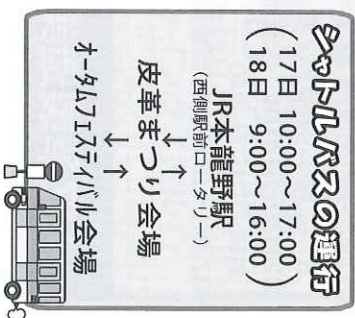 シャトルバスの運行
(17日 10:00~17:00
18日 9:00~16:00)
JR本龍野駅
(西側駅前ロータリー)
↓↑
皮革まつり会場
↓↑
オータムフェスティバル会場